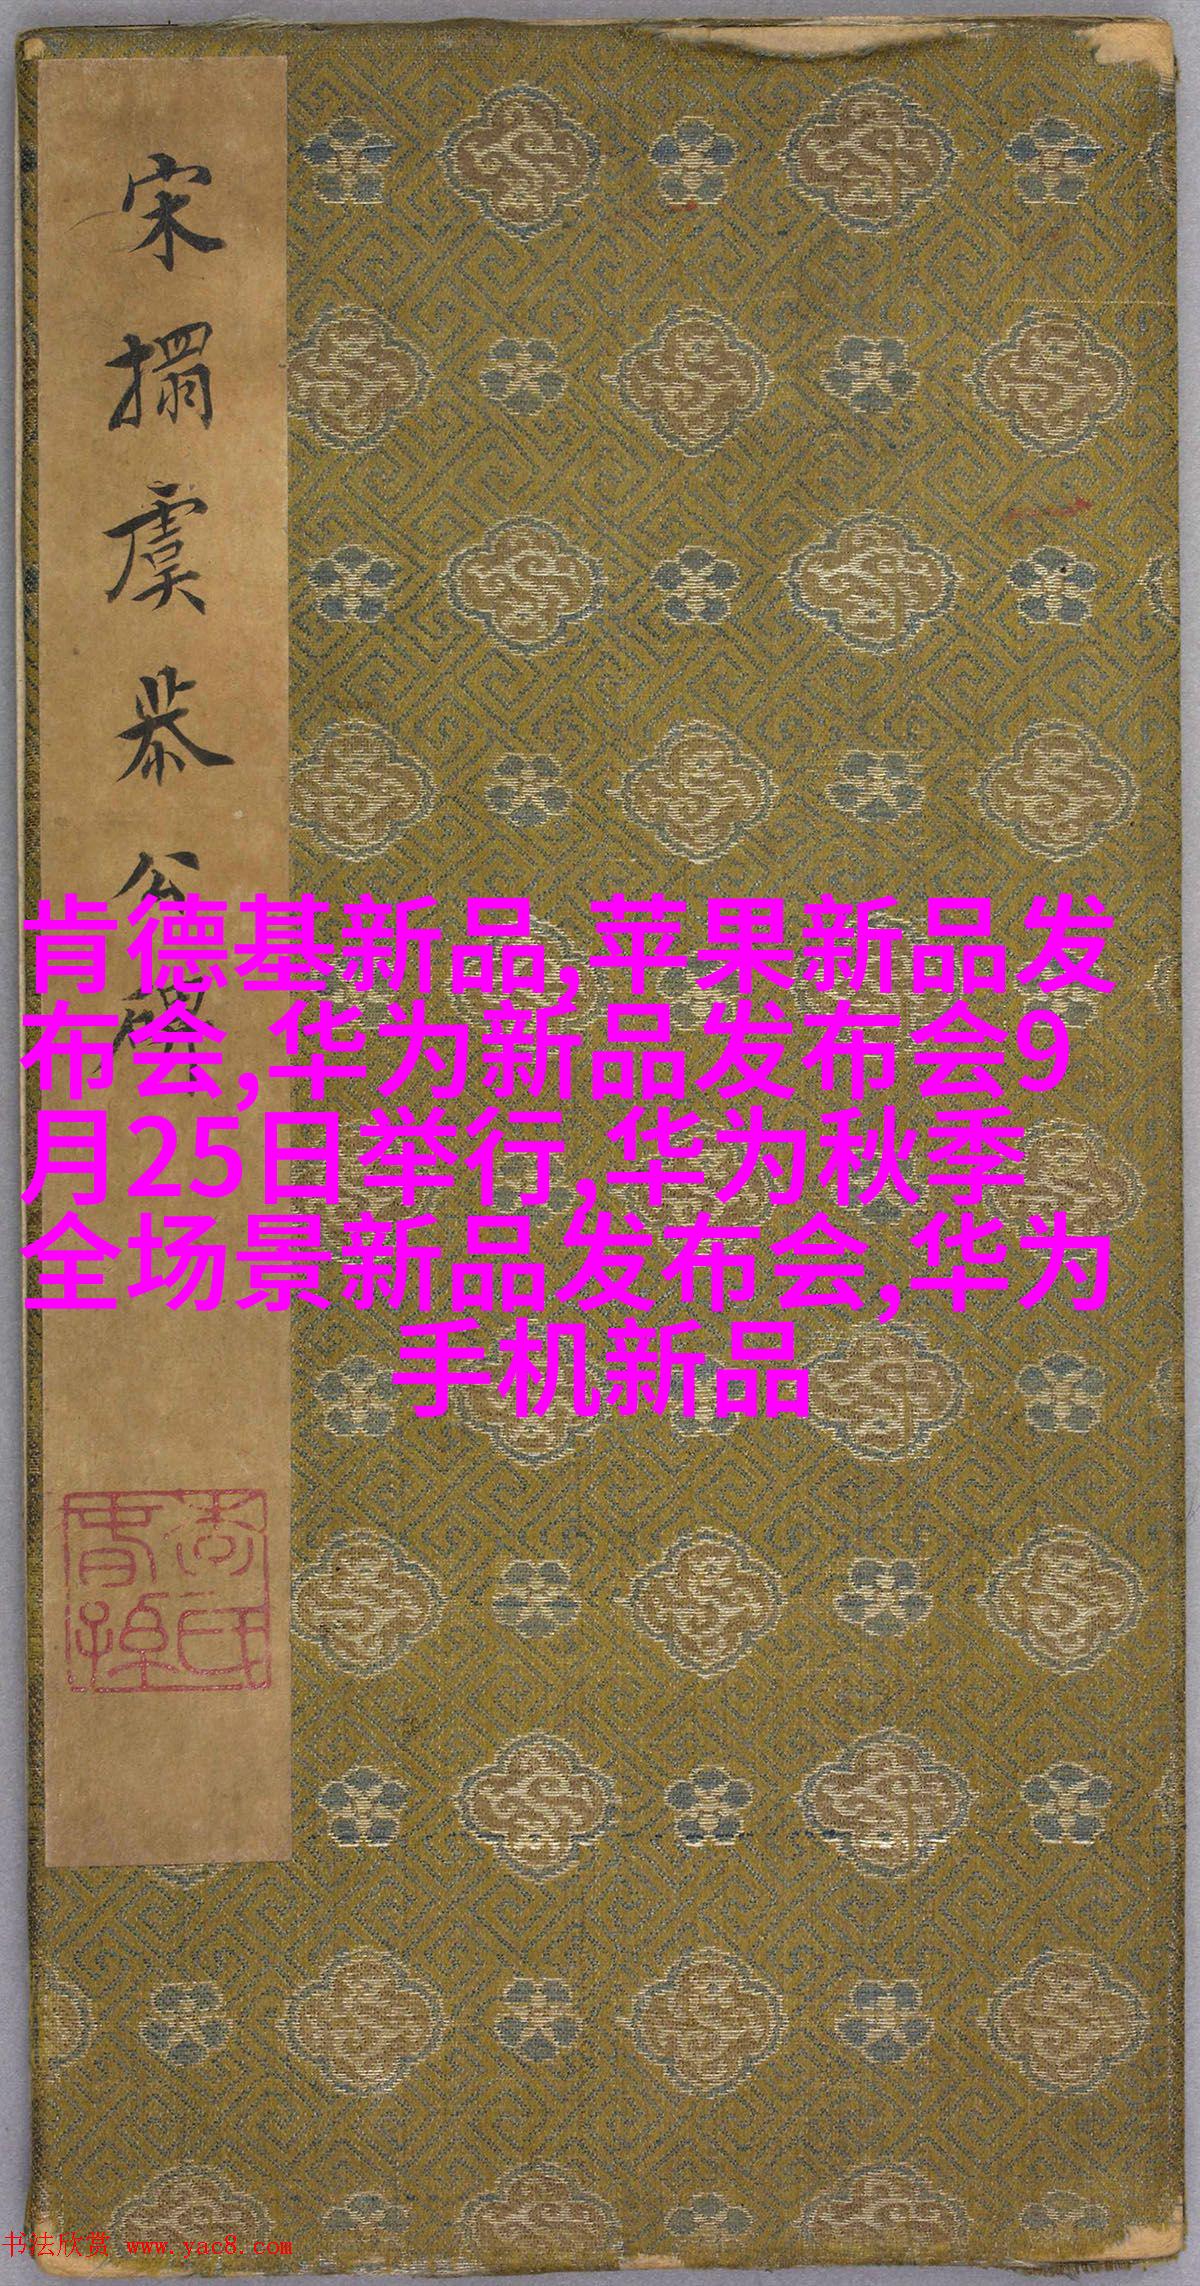 宋搨虞恭公碑
肯德基新品,苹果新品发
布会,华为新品发布会9
月25日举行,华为秋季
全场景新品发布会,华为
手机新品
书法欣赏 www.yac8.com